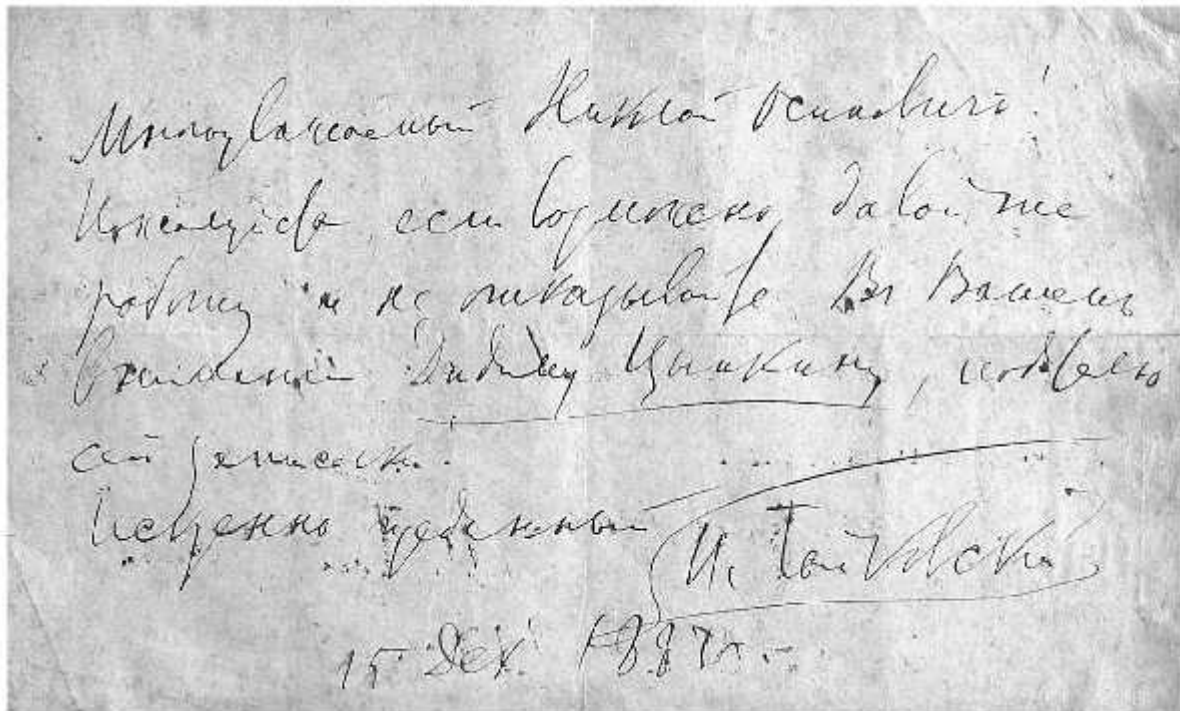 Многоуважаемый Николай Осипович!
Пожалуйста, если возможно, давайте
работу и не отказывайте въ Вашемъ
вниманiи Цынкину, подателю
сей записки.
Искренно преданный
П. Чайковскiй
15 Дек. 1887 г.